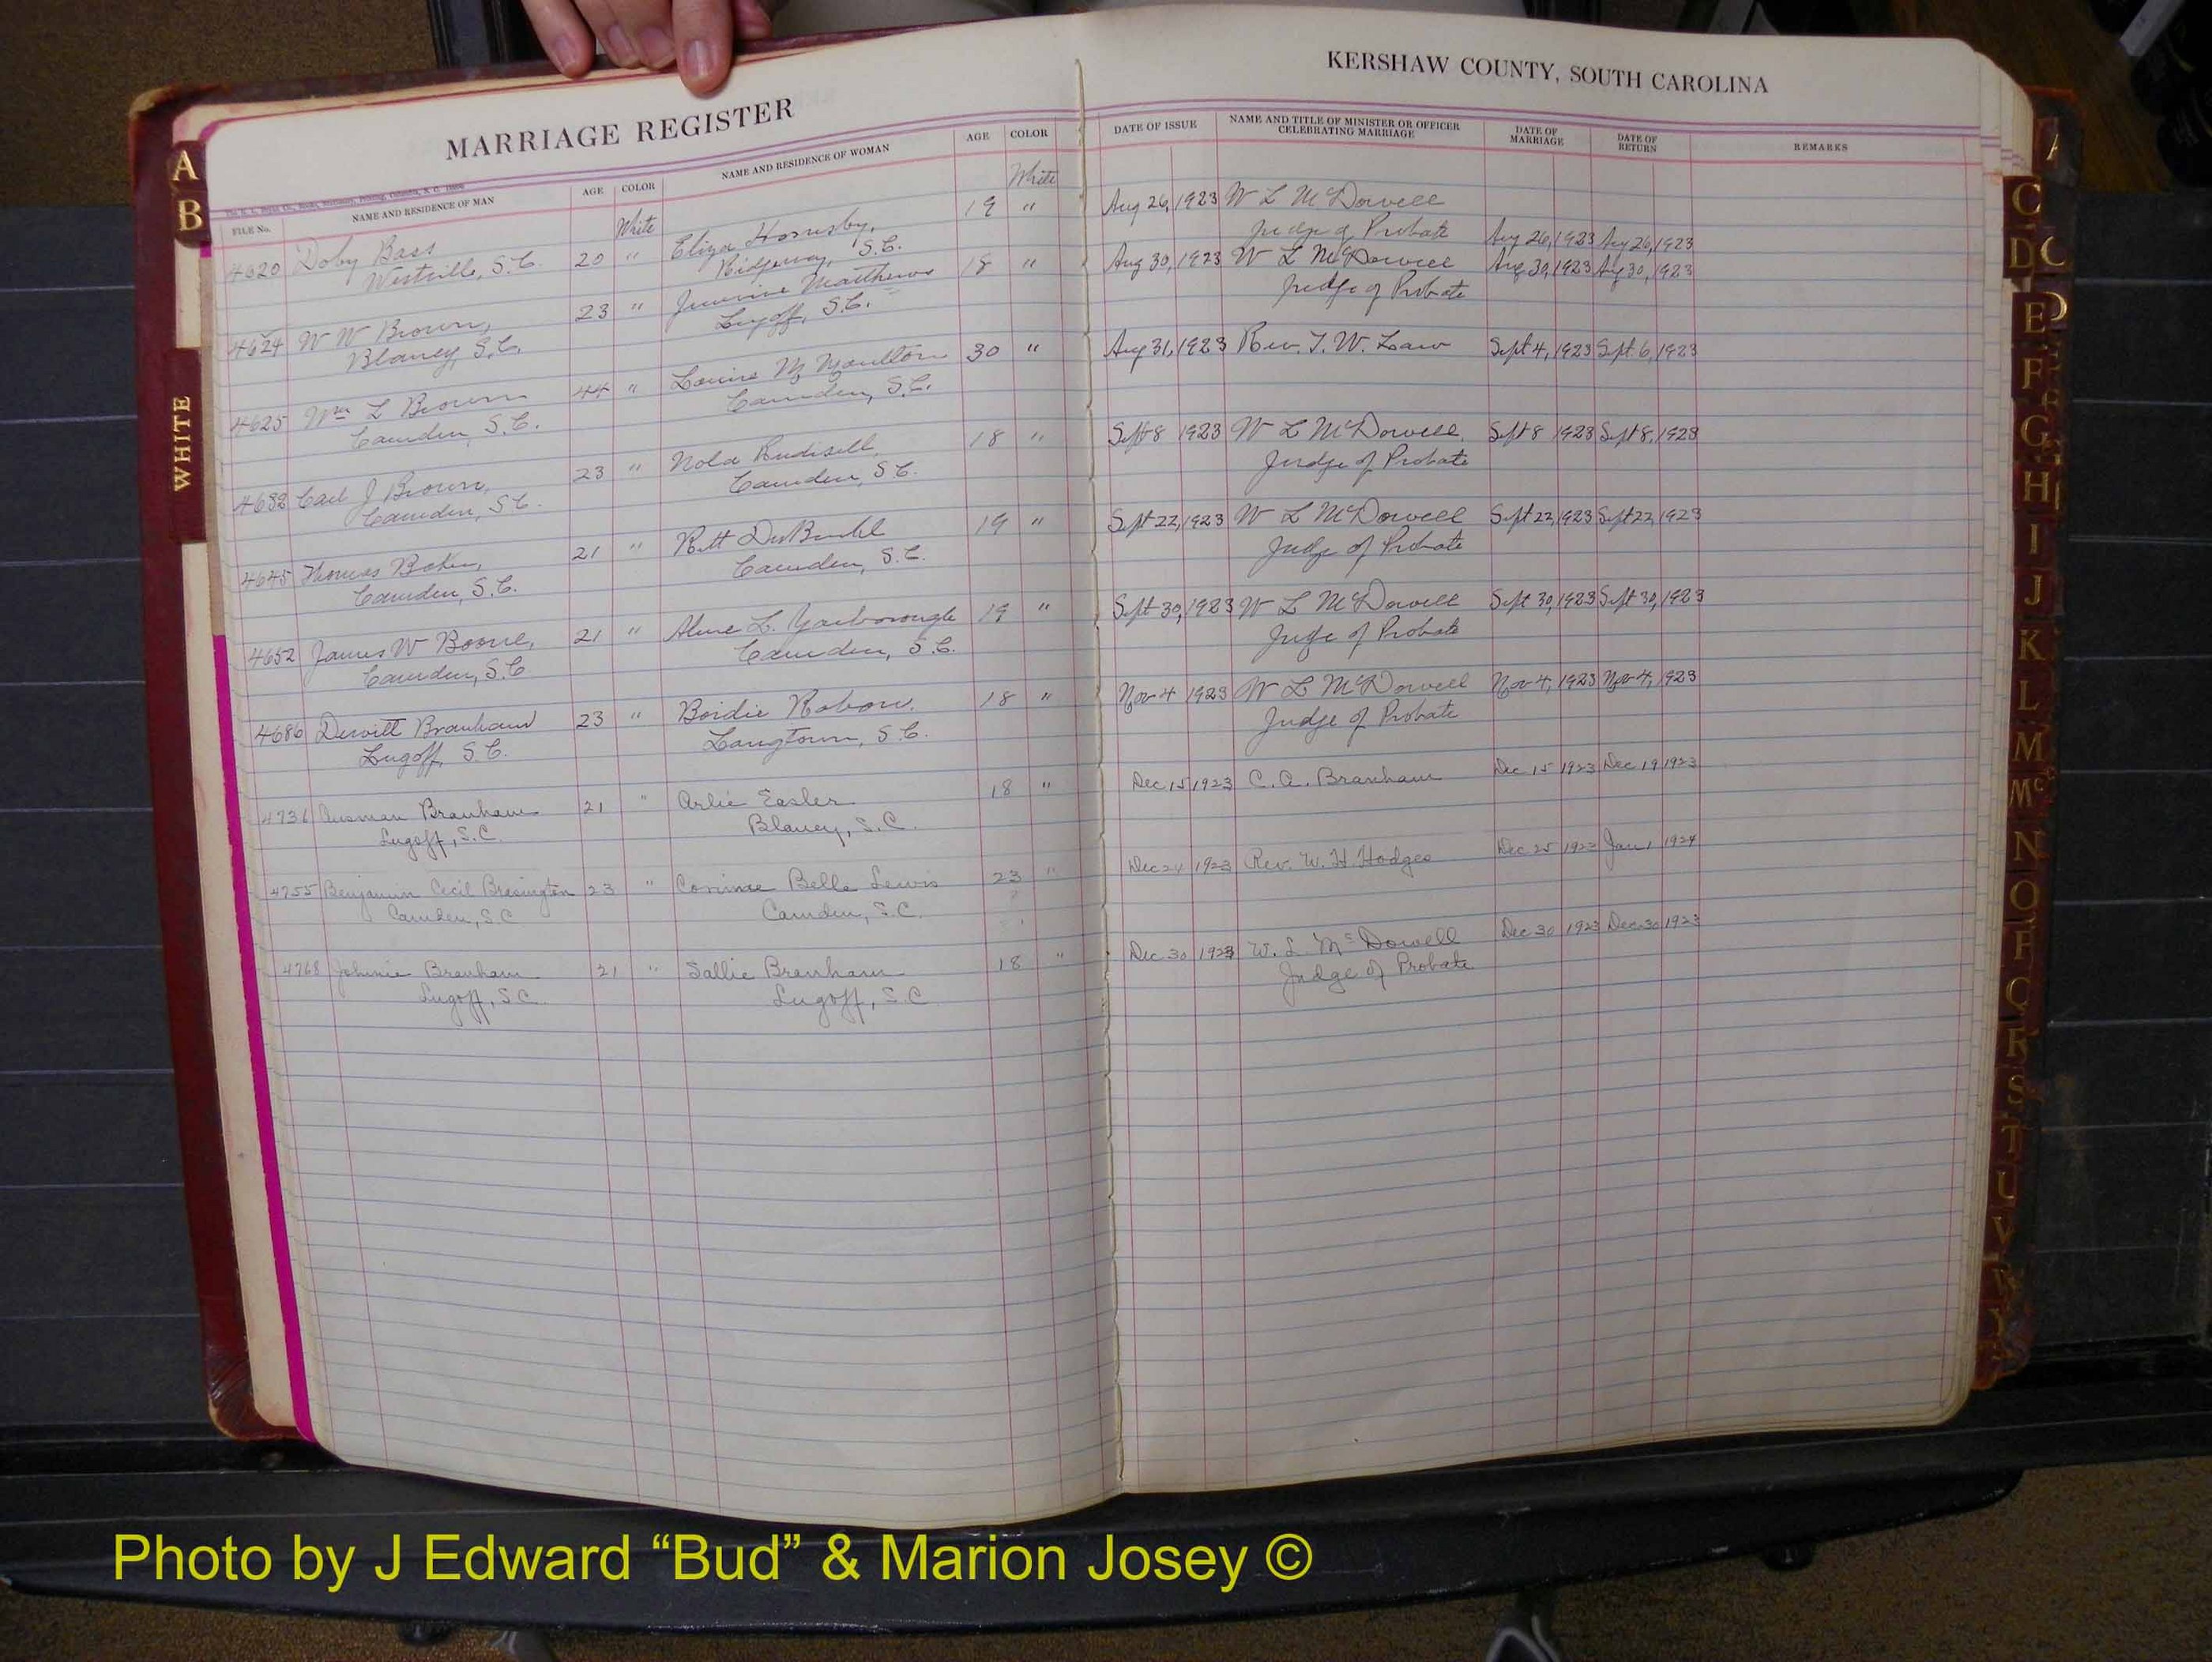 MARRIAGE REGISTER
FILE No. NAME AND RESIDENCE OF MAN AGE COLOR NAME AND RESIDENCE OF WOMAN AGE COLOR
White White
4620 Doby Bass 20 " Eliza Hornsby, 19 "
Westville, S.C. Ridgeway, S.C.
4624 W W Brown, 23 " Matthews 18 "
Blaney, S.C. Lugoff, S.C.
4625 Wm L Brown 44 " Louise M Moulton 30 "
Camden, S.C. Camden, S.C.
Carl J Brown, 23 " Nola 18 "
Camden, S.C. Camden, S.C.
4645 Thomas 21 " 19 "
Camden, S.C. Camden, S.C.
4652 James W Boone, 21 " Aline L. Yarborough 19 "
Camden, S.C Camden, S.C.
4686 Dewitt Branham 23 " Birdie Rabon, 18 "
Lugoff, S.C. Longtown, S.C.
4736 Branham 21 " Arlie Easler 18 "
Lugoff, S.C. Blaney, S.C.
4755 Benjamin Cecil Brasington 23 " Corinne Belle Lewis 23 "
Camden, S.C Camden, S.C.
4768 Johnie Branham 21 " Sallie Branham 18 "
Lugoff, S.C. Lugoff, S.C
KERSHAW COUNTY, SOUTH CAROLINA
DATE OF ISSUE NAME AND TITLE OF MINISTER OR OFFICER CELEBRATING MARRIAGE DATE OF MARRIAGE DATE OF RETURN REMARKS
Aug 26, 1923 W L McDowell
Judge of Probate Aug 26, 1923 Aug 26, 1923
Aug 30, 1923 W L McDowell Aug 30, 1923 Aug 30, 1923
Judge of Probate
Aug 31, 1923 Rev. T. W. Law Sept 4, 1923 Sept. 6, 1923
Sept 8 1923 W L McDowell, Sept 8 1923 Sept 8, 1923
Judge of Probate
Sept 22, 1923 W L McDowell Sept 22, 1923 Sept 22, 1923
Judge of Probate
Sept 30, 1923 W L McDowell Sept 30, 1923 Sept 30, 1923
Judge of Probate
Nov 4 1923 W L McDowell Nov 4, 1923 Nov 4, 1923
Judge of Probate
Dec 15 1923 C. A. Branham Dec 15 1923 Dec 19 1923
Dec 24 1923 Rev. W. H Hodges Dec 25 1923 Jan 1 1924
Dec 30 1923 W. L McDowell Dec 30 1923 Dec 30 1923
Judge of Probate
A
B
WHITE
C
D
E
F
G
H
I
J
K
L
M
Mc
N
O
P
Q
R
S
T
U
V
W
Y
Photo by J Edward “Bud” & Marion Josey ©